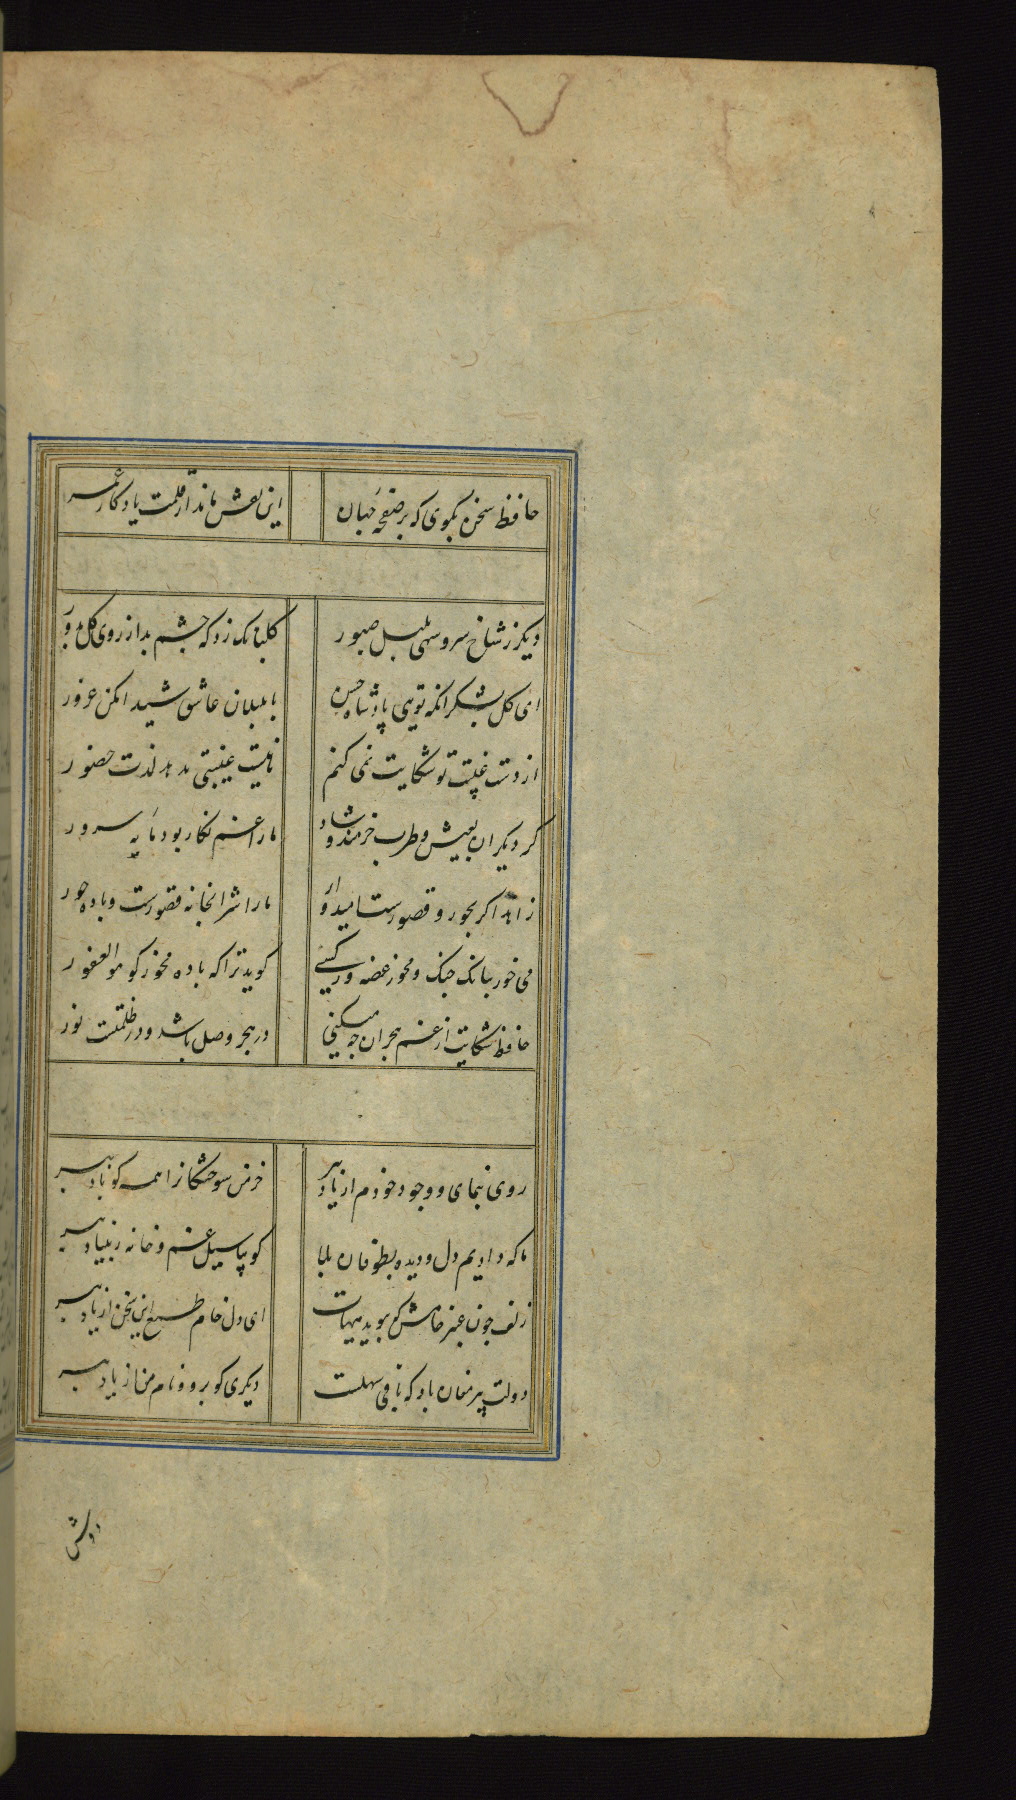 حافظ سخن بگوی که بر صفحه جهان این نقش ماند از قلمت یادگار عمر
دیگر ز شاخ سرو سهی بلبل صبور گلبانک زد که چشم بد از روی کل بدور
ای کل بشکر انکه تویی پادشاه حسن با بلبلان عاشق شیدا مکن غرور
از دست غیبت تو شکایت نمی کنم تا نیست غیبتی ندهد لذت حضور
کر دیکران بعیش و طرب خرمند و شاد مارا غم نکار بود مایه سرور
زاهد اکر بحور و قصورست امیدوار مارا شرابخانه قصورست و باده حور
می خور ببانک چنک و مخور غصه ور کسی کوید ترا که باده مخور کو هو الغفور
حافظ شکایت از غم هجران چه میکنی در هجر وصل باشد و در ظلمتست نور
روی بنمای و وجود خودم از یاد ببر خرمن سوختکانرا همه کو باد ببر
ما که دادیم دل و دیده بطوفان بلا کو بیا سیل غم و خانه ز بنیاد ببر
زلف چون عنبر خامش که ببوید هیهات ای دل خام طمع این سخن از یاد ببر
دولت پیر مغان باد که باقی سهلست دیکری کو برو و نام من از یاد ببر